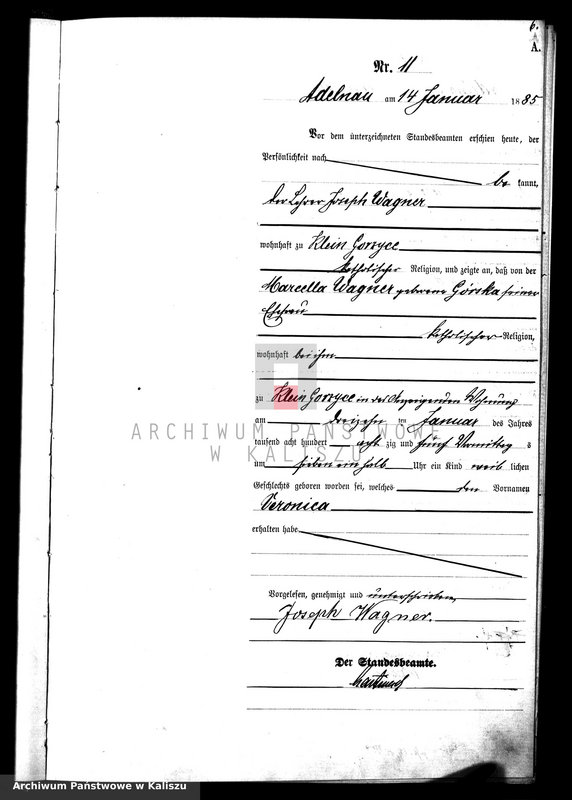 6.
A.
Nr. 11
Adelnau am 14 Januar 1885
Vor dem unterzeichneten Standesbeamten erschien heute, der
Persönlichkeit nach
be kannt,
der Lehrer Joseph Wagner
wohnhaft zu Klein Gorzyce
katholischer Religion, und zeigte an, daß von der
Marcella Wagner geborene Górska seiner
Ehefrau
katholischer Religion,
wohnhaft bei ihm
zu Klein Gorzyce in des Anzeigenden Wohnung
am dreizehn ten Januar des Jahres
tausend acht hundert acht zig und fünf Vormittag s
um sieben ein halb Uhr ein Kind weib lichen
Geschlechts geboren worden sei, welches den Vornamen
Veronica
erhalten habe
Vorgelesen, genehmigt und unterschrieben
Joseph Wagner.
Der Standesbeamte.
ARCHIWUM PAŃSTWOWE
W KALISZU
Archiwum Państwowe w Kaliszu